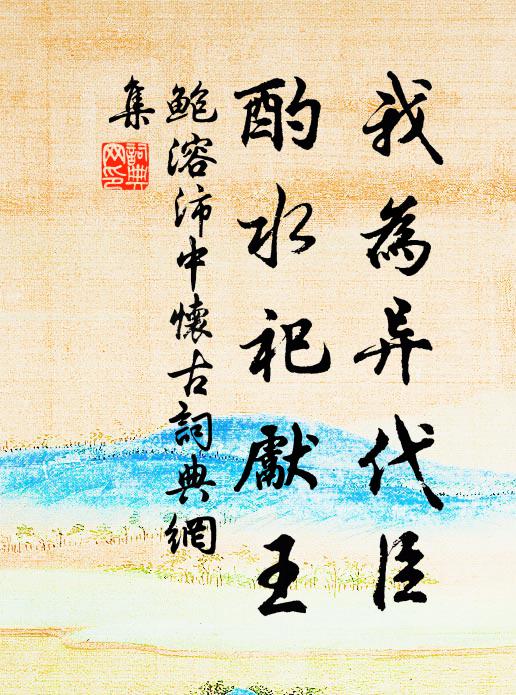 我為异代臣
酌水祀獻王
鮑溶沛中懷古詞典網
集
詞典網印